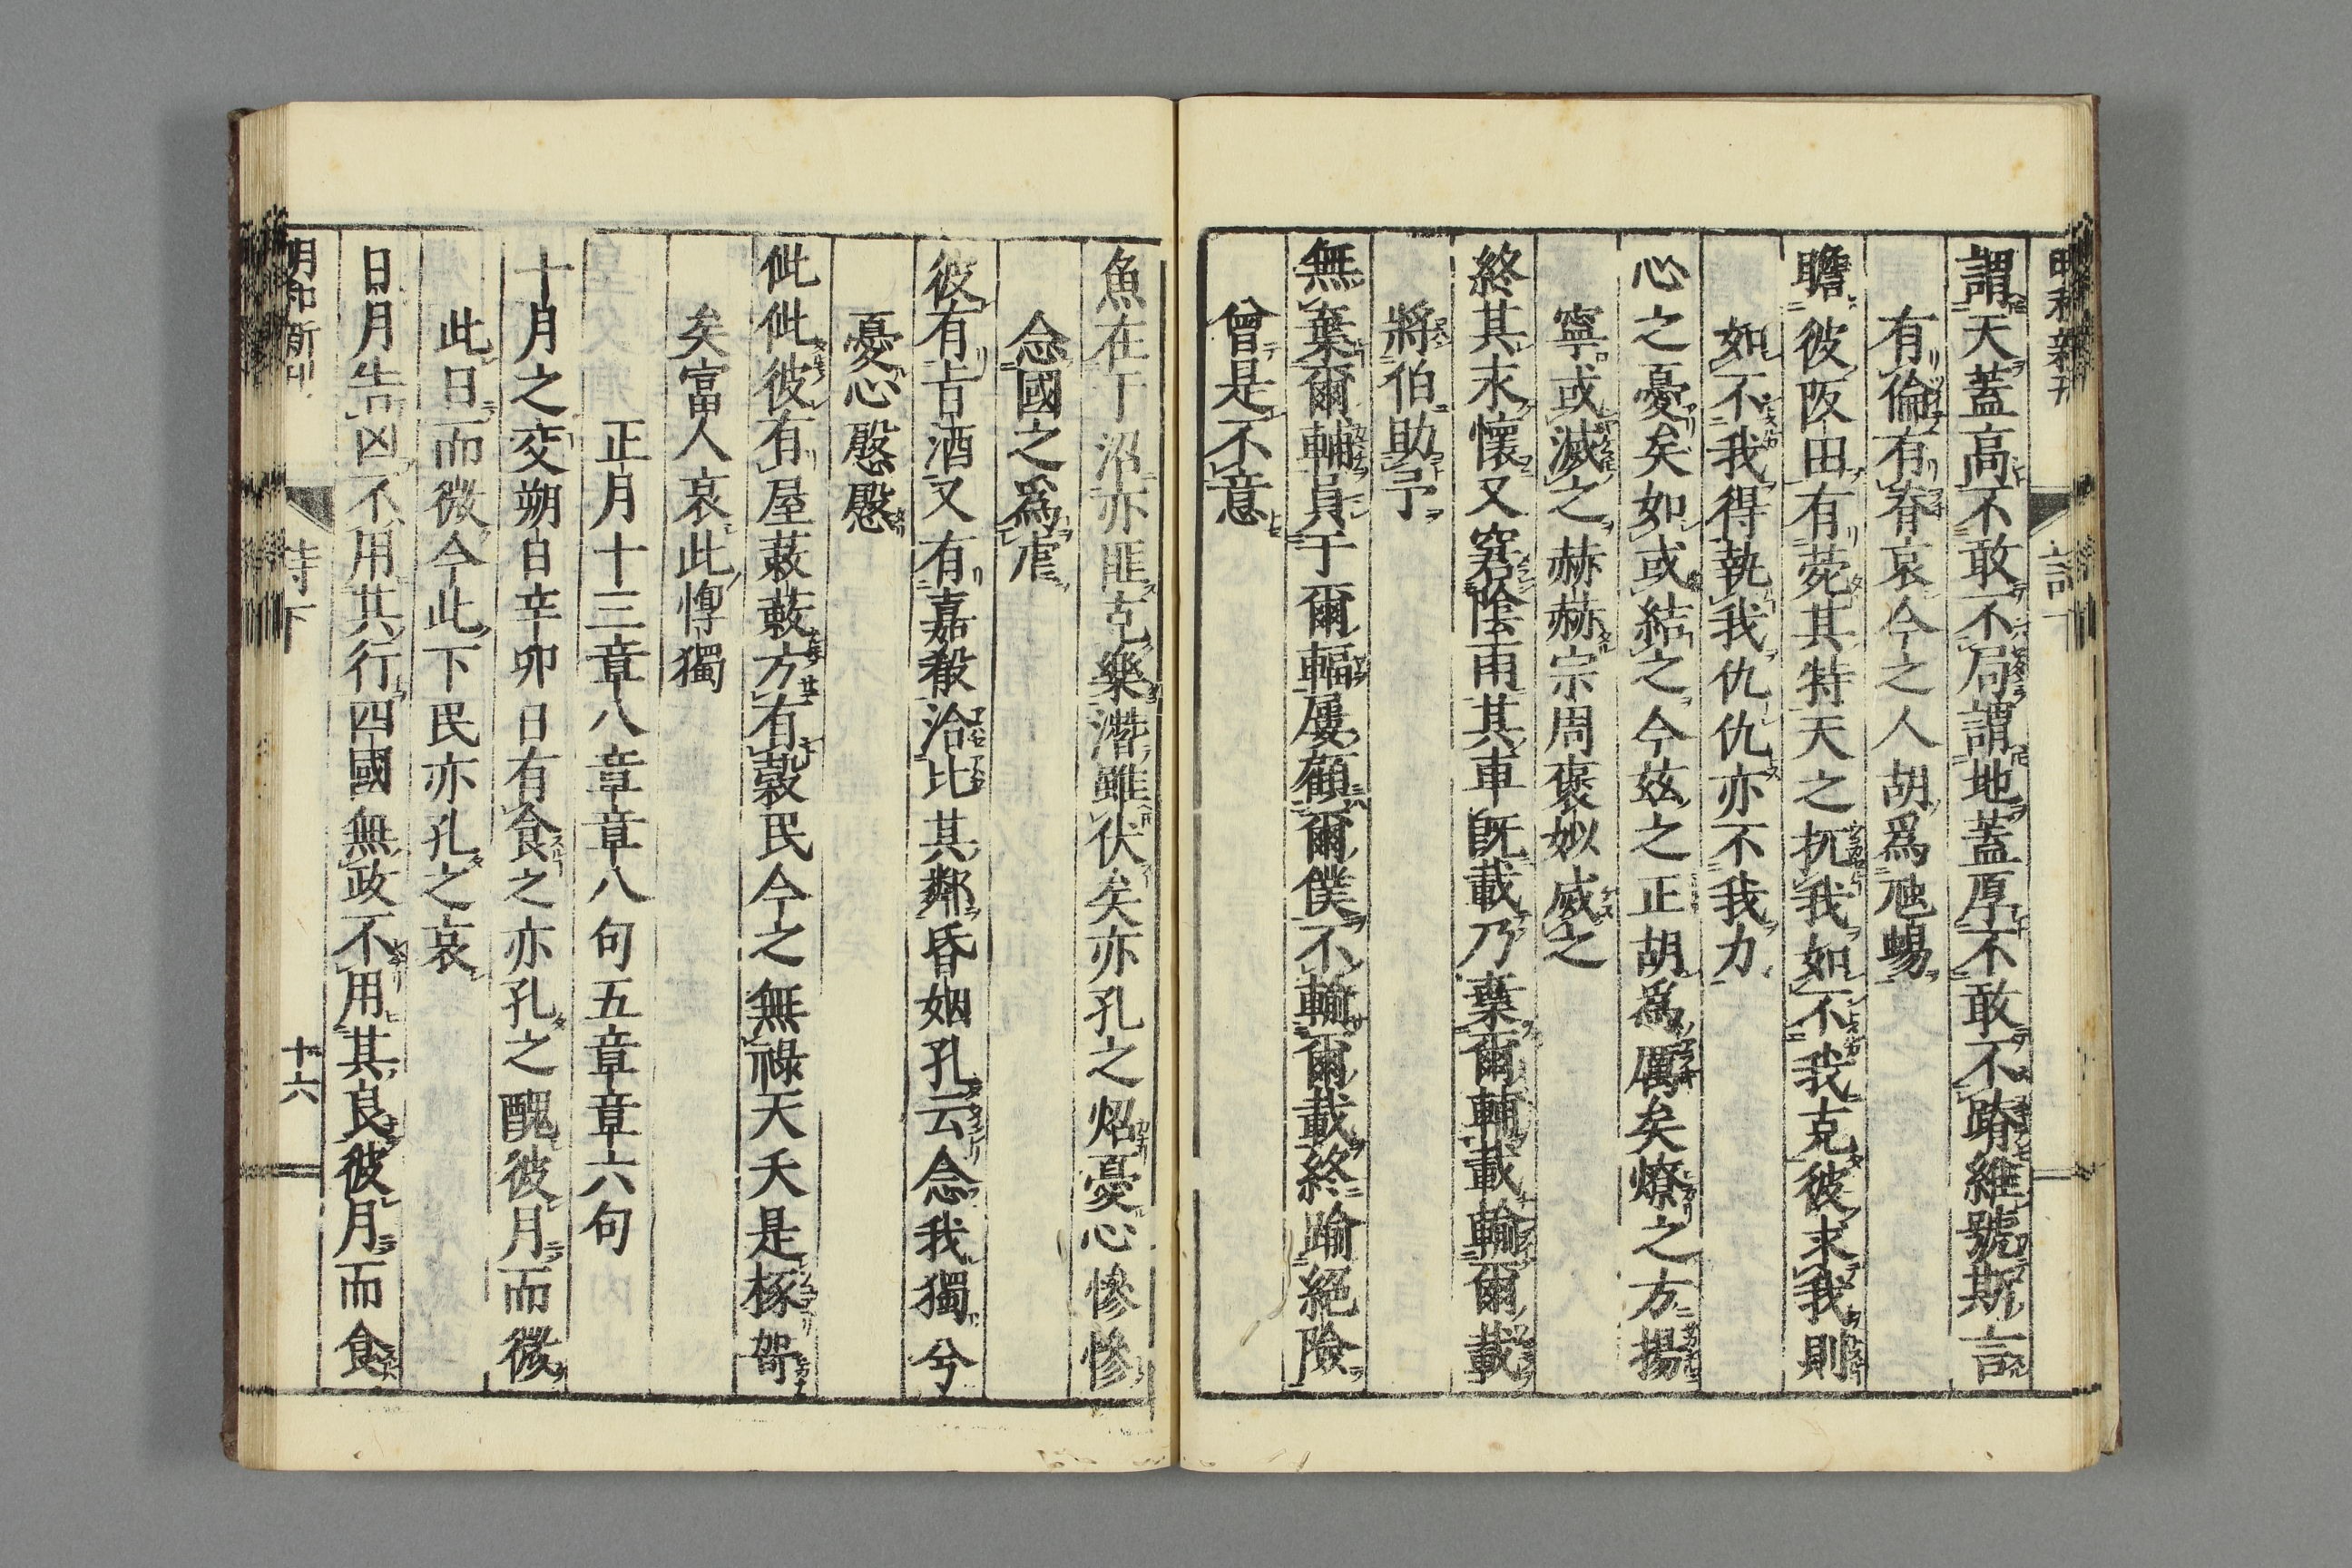 明和新刊
謂天蓋髙不敢不局謂地蓋厚不敢不蹐維號斯言
有倫有脊哀今之人胡爲虺蜴
瞻彼阪田有菀其特天之扤我如不我克彼求我則
如不我得執我仇仇亦不我力
心之憂矣如或結之今兹之正胡爲厲矣燎之方揚
寧或滅之赫赫宗周褒姒烕之
終其永懷又窘陰雨其車旣載乃棄爾輔載輸爾載
將伯助予
無棄爾輔員于爾輻屢顧爾僕不輸爾載終踰絕險
曾是不意
魚在于沼亦匪克樂潛雖伏矣亦孔之炤憂心慘慘
念國之爲虐
彼有旨酒又有嘉殽洽比其鄰昏姻孔云念我獨兮
憂心慇慇
佌佌彼有屋蔌蔌方有穀民今之無祿天夭是椓哿
矣富人哀此惸獨
正月十三章八章章八句五章章六句
十月之交朔日辛卯日有食之亦孔之醜彼月而微
此日而微今此下民亦孔之哀
日月告凶不用其行四國無政不用其良彼月而食
明和新刊
詩下
十六